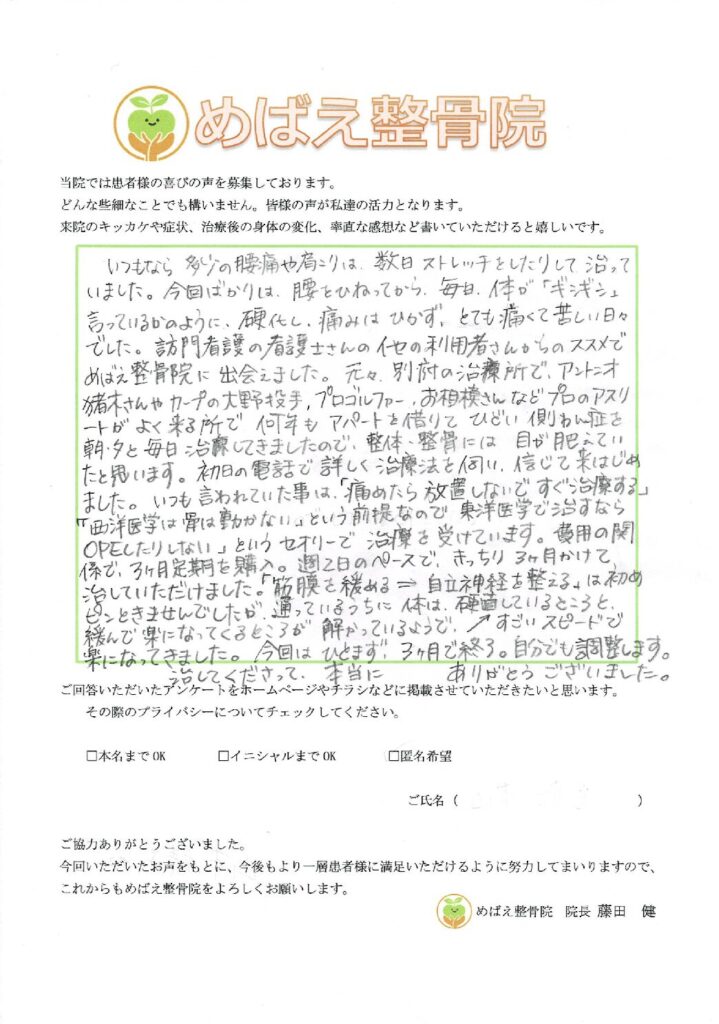 めばえ整骨院
当院では患者様の喜びの声を募集しております。
どんな些細なことでも構いません。皆様の声が私達の活力となります。
来院のキッカケや症状、治療後の身体の変化、率直な感想など書いていただけると嬉しいです。
いつもなら 多少の腰痛や肩こりは、数日ストレッチをしたりして 治って
いました。今回ばかりは、腰をひねってから、毎日、体が「ギシギシ」
言っているかのように、硬化し、痛みは ひかず、とても痛くて苦しい日々
でした。訪問看護の看護士さんの他の利用者さんからのススメで
めばえ整骨院に出会えました。元々、別府の治療所で、アントニオ
猪木さんやカープの大野投手、プロゴルファー、お相撲さんなどプロのアスリ
ートがよく来る所で 何年も アパートを借りて ひどい側わん症を
朝・夕と毎日治療してきましたので、整体、整骨には 目が肥えてい
たと思います。初日の電話で詳しく治療法を伺い、信じて来はじめ
ました。いつも言われていた事は、「痛めたら 放置しないで すぐ治療する」
「西洋医学は骨は動かない」という前提なので 東洋医学で治すなら
OPEしたりしない」というセオリーで 治療を受けています。費用の関
係で、3ヶ月定期を購入。週2日のペースで、きっちり3ヶ月かけて、
治していただけました。「筋膜を緩める⇒自立神経を整える」は初め
ピンときませんでしたが、通っているうちに 体は、硬直しているところと、
緩んで楽になってくるところが 解かっているようで、↗すごいスピードで
楽になってきました。今回は ひとまず、3ヶ月で終了。自分でも調整します。
治してくださって、本当に ありがとうございました。
ご回答いただいたアンケートをホームページやチラシなどに掲載させていただきたいと思います。
その際のプライバシーについてチェックしてください。
□本名までOK □イニシャルまでOK □匿名希望
ご氏名（ ）
ご協力ありがとうございました。
今回いただいたお声をもとに、今後もより一層患者様に満足いただけるように努力してまいりますので、
これからもめばえ整骨院をよろしくお願いします。
めばえ整骨院 院長 藤田 健